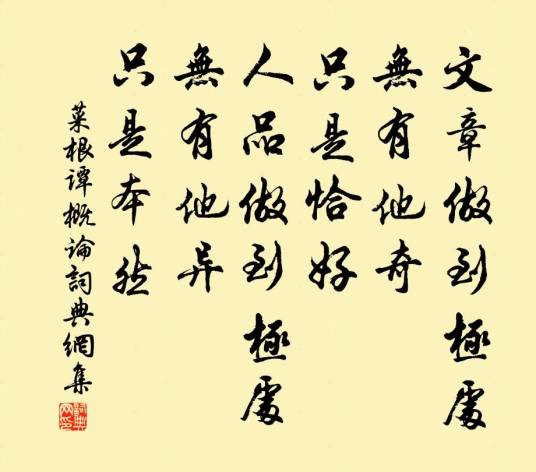 文章做到極處
無有他奇
只是恰好
人品做到極處
無有他异
只是本然
菜根谭概論詞典網集